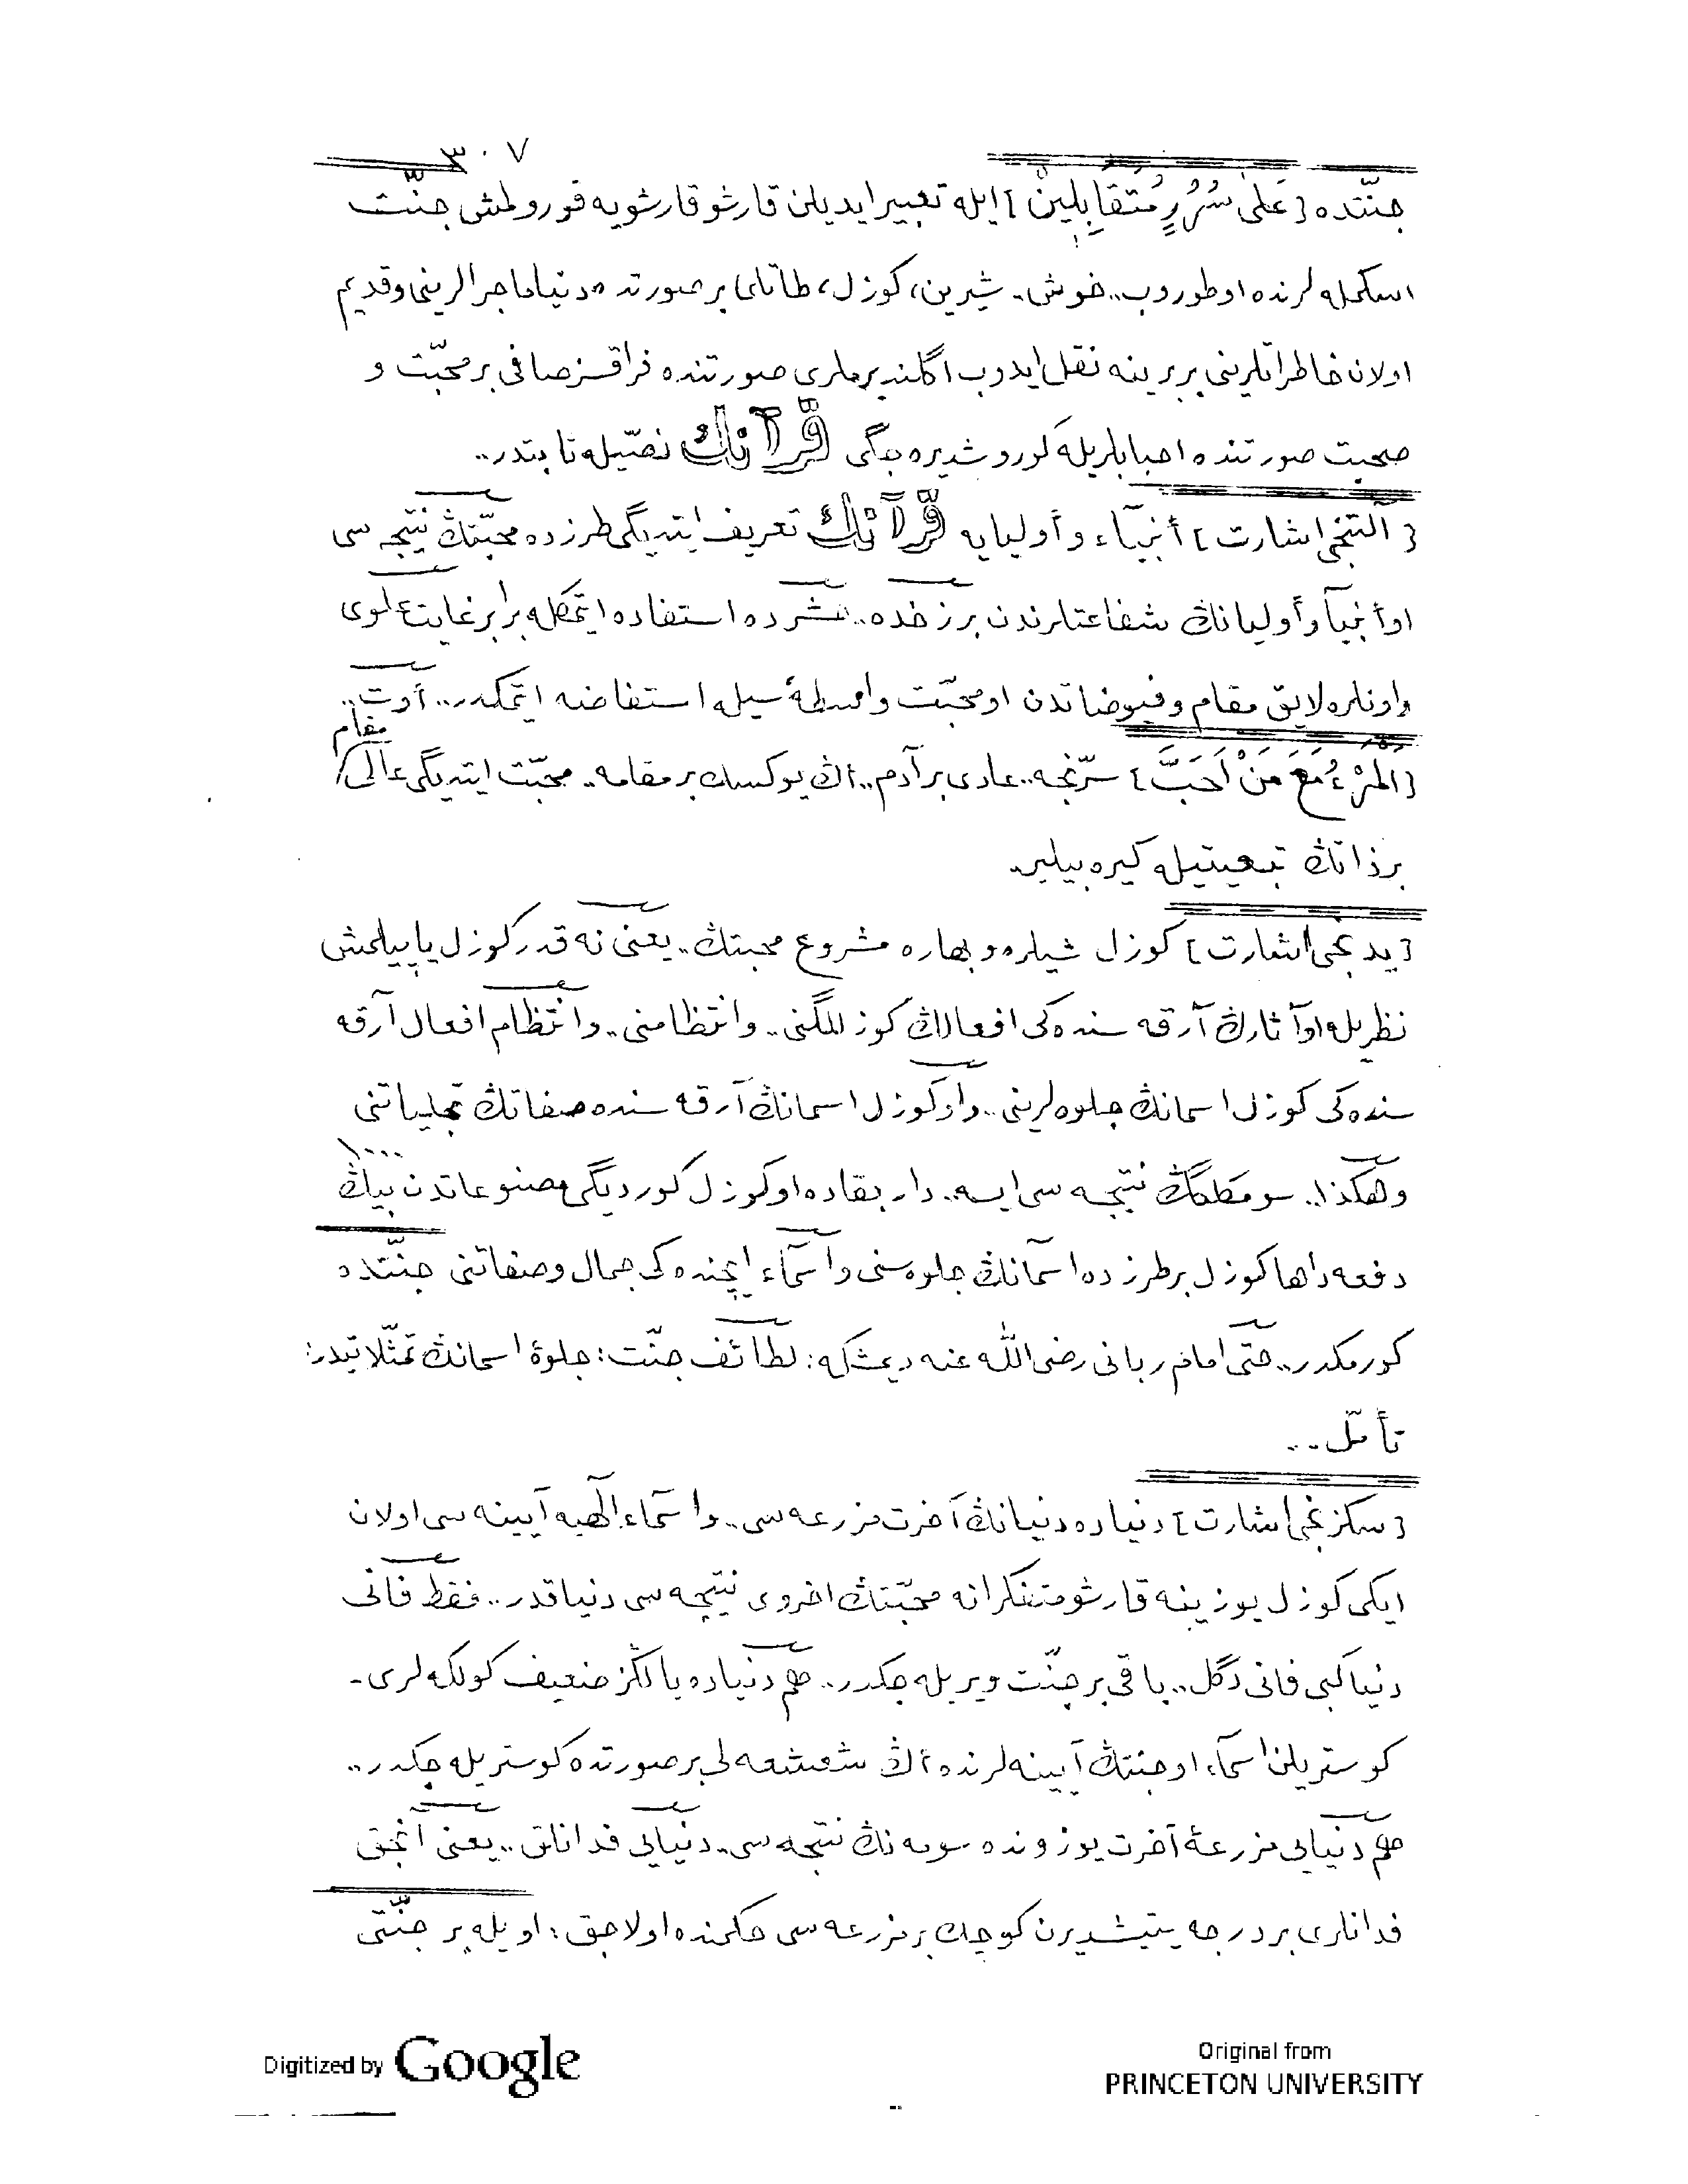 ٣٠٧
جنّتده [عَلٰى سُرُرٍ مُتَقَابِلِينَ] ايله تعبير ايديلن قارشو قارشويه قورولمش جنّت
اسكمله لرنده اوطوروب.. خوش، شيرين، كوزل، طاتلى بر صورتده دنيا ماجرالرينى وقديم
اولان خاطراتلرينى بربرينه نقل ايدوب اگلنديرملرى صورتنده فراقسز صافى بر محبّت و
صحبت صورتنده احبابلريله كوروشديره جگى قرآنڭ نصّيله ثابتدر..
[آلتنجى اشارت] أنبيآء و أوليايه قرآنڭ تعريف ايتديگى طرزده محبّتڭ نتيجه سى
او أنبيآ و أوليانڭ شفاعتلرندن برزخده.. حشرده استفاده ايتمكله برابر غايت علوى
واونلره لايق مقام و فيوضاتدن او محبّت واسطهٔ سيله استفاضه ايتمكدر.. أوت..
[اَلْمَرْءُ مَعَ مَنْ اَحَبَّ] سرّنجه.. عادى بر آدم.. اڭ يوكسك بر مقامه.. محبّت ايتديگى عالى مقام
بر ذاتڭ تبعيتيله كيره بيلير.
[يدنجى اشارت] كوزل شيلره و بهاره مشروع محبتڭ.. يعنى نه قدر كوزل ياپيلمش
نظريله او آثارڭ آرقه سنده كى افعالڭ كوزللگنى.. وانتظامنى.. وانتظام افعال آرقه
سنده كى كوزل اسمانڭ جلوه لرينى.. واو كوزل اسمانڭ آرقه سنده صفاتڭ تجلياتنى
وهكذا.. سومكلگڭ نتيجه سى ايسه.. دار بقاده او كوزل كورديگى مصنوعاتدن بيڭ ١٠٠٠
دفعه داها كوزل بر طرزده اسمانڭ جلوه سنى و اسمآء ايچنده كى جمال وصفاتنى جنّتده
كورمكدر.. حتى امام ربانى رضى اللّٰه عنه ديمشكه: لطائف جنّت: جلوهٔ اسمانڭ تمثّلاتيدر:
تأمّل..
[سكزنجى اشارت] دنياده دنيانڭ آخرت مزرعه سى.. و اسمآء الٰهيه آيينه سى اولان
ايكى كوزل يوزينه قارشو متفكرانه محبّتڭ اخروى نتيجه سى دنيا قدر.. فقط فانى
دنيا كبى فانى دگل.. باقى بر جنّت ويريله جكدر.. هم دنياده يالڭز ضعيف كولكه لرى
كوستريلن اسمآء، او جنتڭ آيينه لرنده اڭ شعشعه لى بر صورتده كوستريله جكدر..
هم دنيايى مزرعهٔ آخرت يوزونده سومه نڭ نتيجه سى.. دنيايى فدانلق.. يعنى آنجق
فدانلرى بر درجه يتيشديرن كوچك بر مزرعه سى حكمنده اولاجق: اويله بر جنّتى
Digitized by Google
Original from
PRINCETON UNIVERSITY